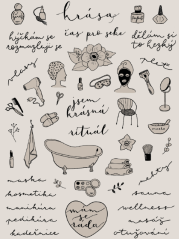 krása
hýčkám se
rozmazluji se
čas pro sebe
dělám si
to hezký
vlasy
pleť
jsem
krásná
rituál
maska
kosmetika
manikúra
pedikúra
kadeřnice
mám
se
ráda
sauna
wellness
masáž
otužování